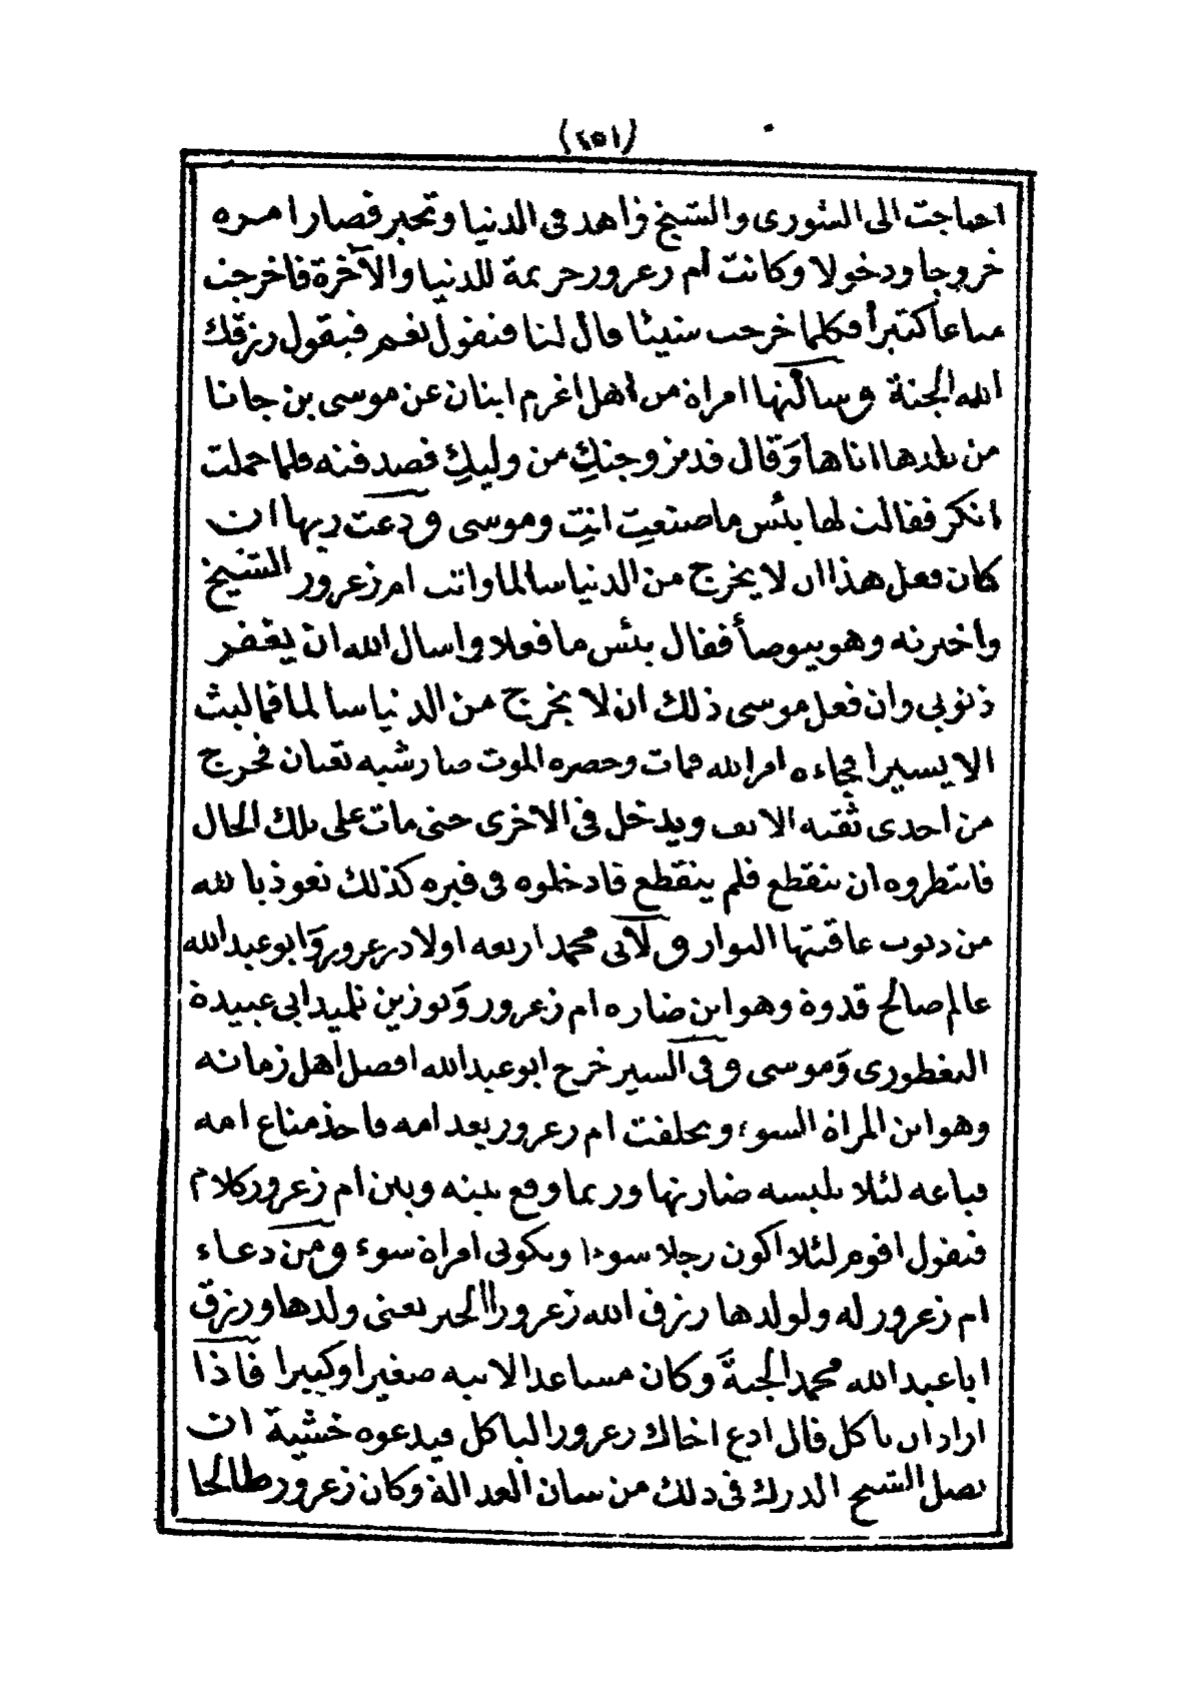 (٢٥١)
احتاجت الى الشورى والشيخ زاهد فى الدنيا وتحير فصار امره
خروجا ودخولا وكانت أم زعرور حريمة للدنيا والآخرة فاخرجت
متاعا كثيرا فكلما خرجت شيئا قال لنا فنقول نعم فيقول رزقك
الله الجنة وسألتها امراة من أهل اغرم اينان عن موسى بن جانا
من بلدها اتاها وقال قد تزوجتك من وليك فصدقته فلما حملت
انكر فقالت لها بئس ما صنعت انت وموسى ودعت ربها ان
كان فعل هذا ان لا يخرج من الدنيا سالما واتت ام زعرور الشيخ
واخبرته وهو يتوضأ فقال بئس ما فعلا واسال الله ان يغفر
ذنوبى وان فعل موسى ذلك ان لا يخرج من الدنيا سالما فما لبث
الا يسيرا فجاءه امر الله فمات وحضره الموت صار شبه ثعبان فخرج
من احدى ثقبة الانف ويدخل فى الاخرى حتى مات على تلك الحال
فانتظروه ان ينقطع فلم ينقطع فادخلوه فى قبره كذلك نعوذ بالله
من ذنوب عاقبتها البوار ولابى محمد اربعة اولاد زعرور وابو عبد الله
عالم صالح قدوة وهو ابن ضارة ام زعرور وبوزين تلميذ ابى عبيدة
التغطورى وموسى وفى السير خرج ابو عبد الله افضل اهل زمانه
وهو ابن المراة السوء وتخلفت ام زعرور بعد امه فاخذ متاع امه
فباعه لئلا تلبسه ضارتها وربما وقع بينه وبين ام زعرور كلام
فتقول اقوم لئلا اكون رجلا سوءا وتكونى امراة سوء ومن دعاء
ام زعرور له ولولدها رزق الله زعرورا الخير يعنى ولدها ورزق
ابا عبد الله محمد الجنة وكان مساعدا لابيه صغيرا وكبيرا فاذا
اراد ان ياكل قال ادع اخاك زعرور الياكل فيدعوه خشية ان
يصل الشيخ الدرك فى ذلك من شان العدالة وكان زعرور طالحا